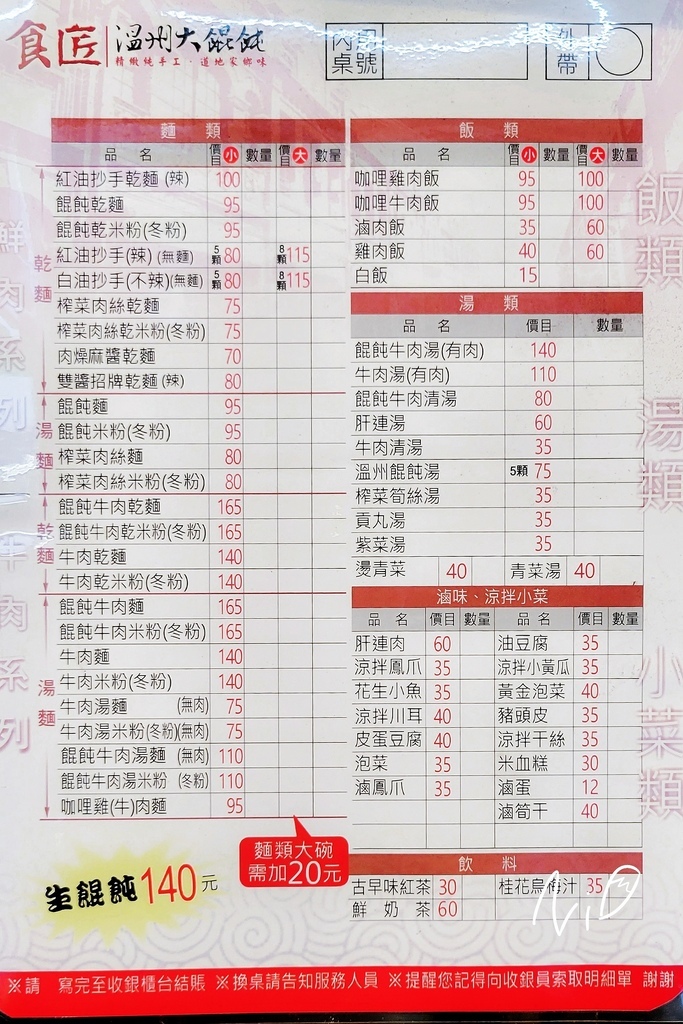 食匠 溫州大餛飩
精緻純手工．道地家鄉味
內用桌號
外帶
麵 類
品 名 價目 小 數量 價目 大 數量
乾麵
紅油抄手乾麵 (辣) 100
餛飩乾麵 95
餛飩乾米粉(冬粉) 95
紅油抄手(辣) (無麵) 5顆 80 8顆 115
白油抄手(不辣)(無麵) 5顆 80 8顆 115
榨菜肉絲乾麵 75
榨菜肉絲乾米粉(冬粉) 75
肉燥麻醬乾麵 70
雙醬招牌乾麵 (辣) 80
湯麵
餛飩麵 95
餛飩米粉(冬粉) 95
榨菜肉絲麵 80
榨菜肉絲米粉(冬粉) 80
乾麵
餛飩牛肉乾麵 165
餛飩牛肉乾米粉(冬粉) 165
牛肉乾麵 140
牛肉乾米粉(冬粉) 140
湯麵
餛飩牛肉麵 165
餛飩牛肉米粉(冬粉) 165
牛肉麵 140
牛肉米粉(冬粉) 140
牛肉湯麵 (無肉) 75
牛肉湯米粉(冬粉)(無肉) 75
餛飩牛肉湯麵 (無肉) 110
餛飩牛肉湯米粉 (冬粉) 110
咖哩雞(牛)肉麵 95
麵類大碗
需加20元
生餛飩140元
飯 類
品 名 價目 小 數量 價目 大 數量
咖哩雞肉飯 95 100
咖哩牛肉飯 95 100
滷肉飯 35 60
雞肉飯 40 60
白飯 15
湯 類
品 名 價目 數量
餛飩牛肉湯(有肉) 140
牛肉湯(有肉) 110
餛飩牛肉清湯 80
肝連湯 60
牛肉清湯 35
溫州餛飩湯 5顆 75
榨菜筍絲湯 35
貢丸湯 35
紫菜湯 35
燙青菜 40 青菜湯 40
滷味、涼拌小菜
品 名 價目 數量 品 名 價目 數量
肝連肉 60 油豆腐 35
涼拌鳳爪 35 涼拌小黃瓜 35
花生小魚 35 黃金泡菜 40
涼拌川耳 40 豬頭皮 35
皮蛋豆腐 40 涼拌干絲 35
泡菜 35 米血糕 30
滷鳳爪 35 滷蛋 12
滷筍干 40
飲 料
古早味紅茶 30 桂花烏梅汁 35
鮮奶茶 60
鮮肉系列
牛肉系列
飯類
湯類
小菜類
※請 寫完至收銀櫃台結賬 ※換桌請告知服務人員 ※提醒您記得向收銀員索取明細單 謝謝